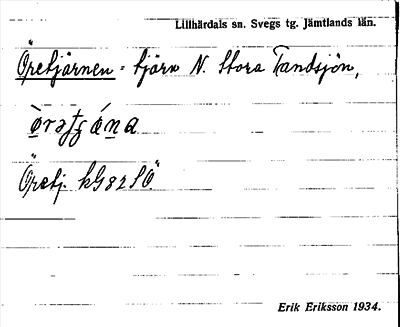 Lillhärdals sn. Svegs tg. Jämtlands län.
Öretjärnen = tjärn N. Stora Tandsjön,
Öretj. kG82SÖ
Erik Eriksson 1934.